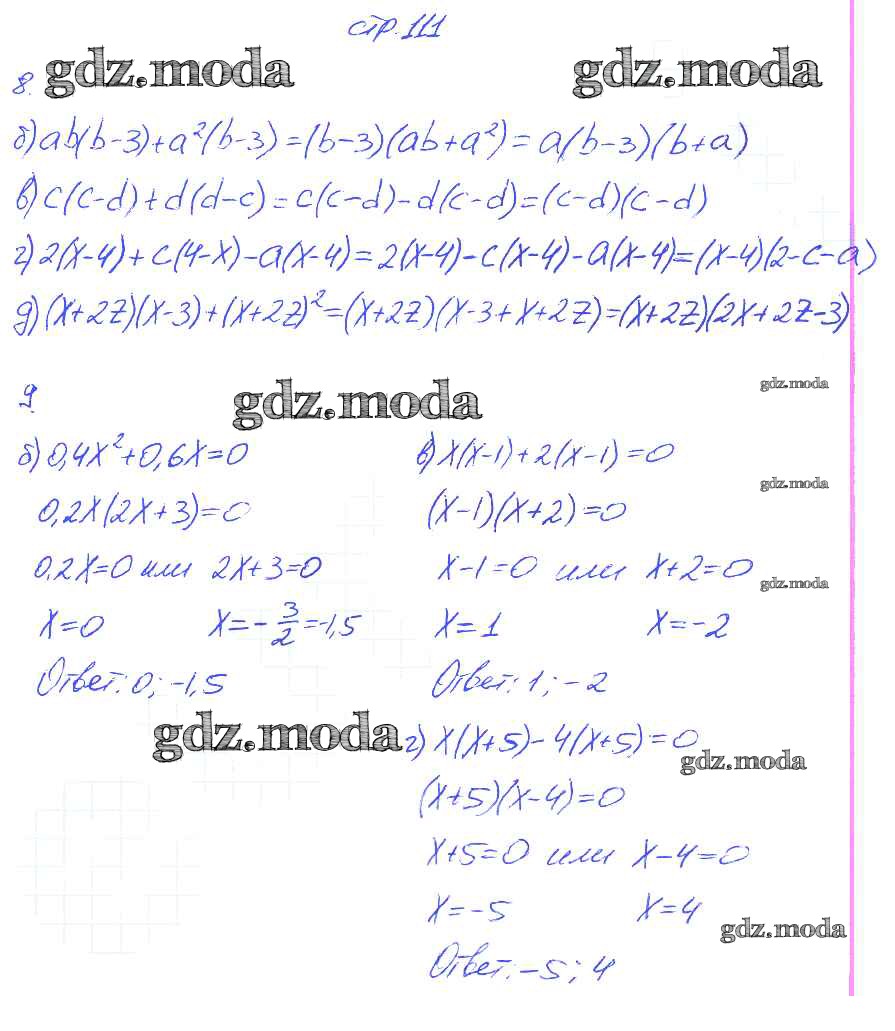 стр. 111
8. gdz.moda gdz.moda
б) ab(b-3)+a²(b-3)=(b-3)(ab+a²)=a(b-3)(b+a)
в) c(c-d)+d(d-c)=c(c-d)-d(c-d)=(c-d)(c-d)
г) 2(x-4)+c(4-x)-a(x-4)=2(x-4)-c(x-4)-a(x-4)=(x-4)(2-c-a)
д) (x+2z)(x-3)+(x+2z)²=(x+2z)(x-3+x+2z)=(x+2z)(2x+2z-3)
9 gdz.moda gdz.moda
б) 0,4x²+0,6x=0
0,2x(2x+3)=0
0,2x=0 или 2x+3=0
x=0 x=-3/2=-1,5
Ответ: 0; -1,5
в) x(x-1)+2(x-1)=0
gdz.moda
(x-1)(x+2)=0
x-1=0 или x+2=0
gdz.moda
x=1 x=-2
Ответ: 1; -2
gdz.moda
г) x(x+5)-4(x+5)=0
gdz.moda
(x+5)(x-4)=0
x+5=0 или x-4=0
x=-5 x=4
gdz.moda
Ответ: -5; 4